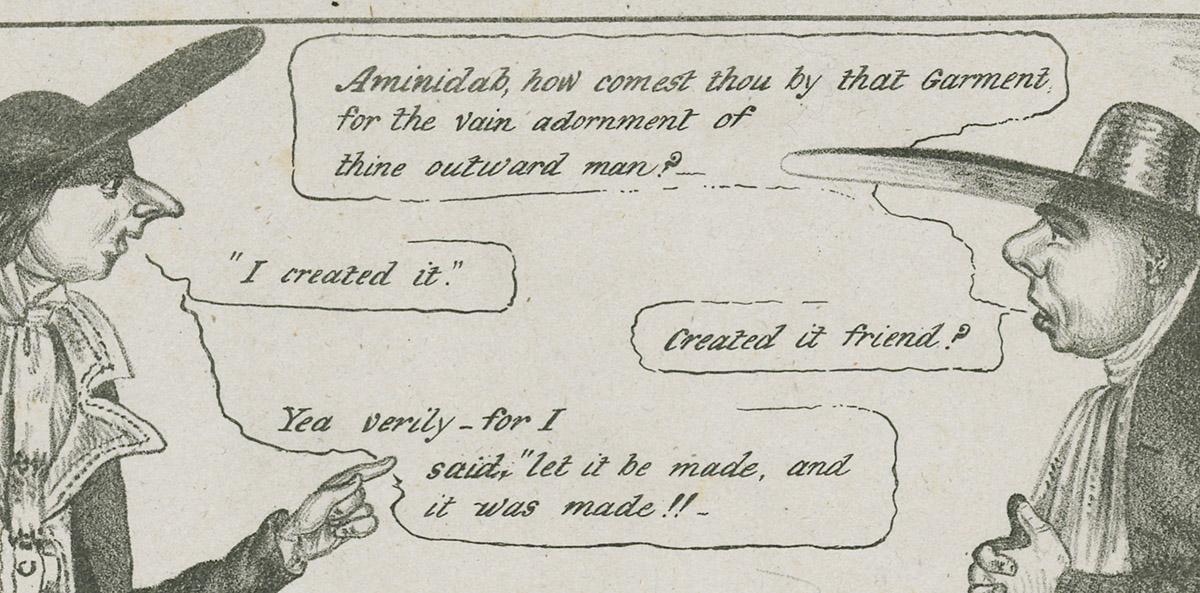 Aminidab, how comest thou by that Garment,
for the vain adornment of
thine outward man?_
"I created it."
Created it friend?
Yea verily - for I
said, "let it be made, and
it was made!! -